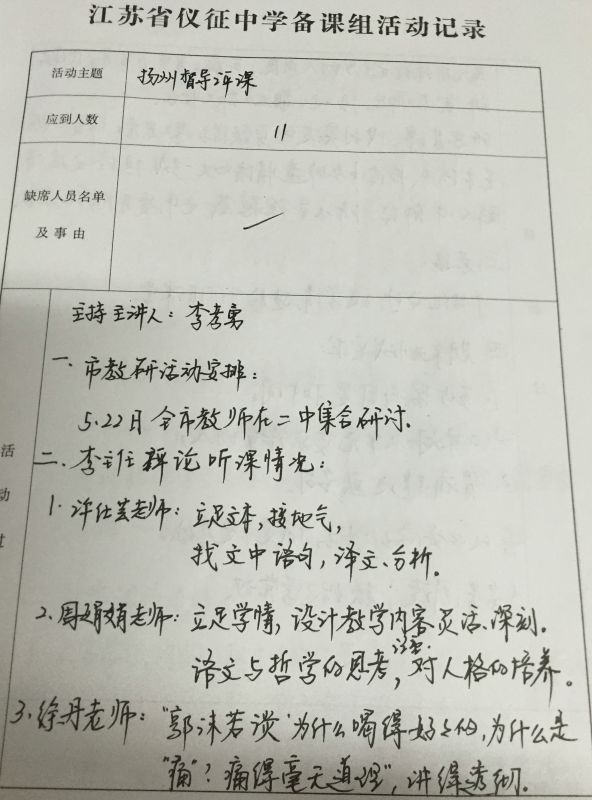 江苏省仪征中学备课组活动记录
活动主题 扬州督导评课
应到人数 11
缺席人员名单
及事由
主持主讲人：李孝勇
一、市教研活动安排：
5.22日全市教师在二中集合研讨。
二、李主任评论听课情况：
1、许仕芸老师：立足文本，接地气，
找文中语句，译文、分析。
2、周娟娟老师：立足学情，设计教学内容灵活、深刻。
语文与哲学的思考，注重对人格的培养。
3、徐丹老师："郭沫若谈'为什么嘱得好好的，为什么是
"痛"？痛得毫无道理"，讲得透彻。
活
动